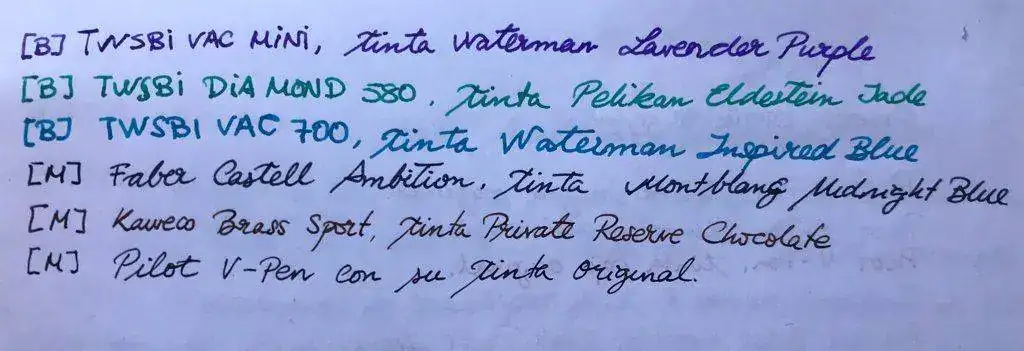 [B] TWSBi VAC MiNi, tinta Waterman Lavender Purple
[B] TWSBi DiAMOND 580, tinta Pelikan Eldestein Jade
[B] TWSBI VAC 700, tinta Waterman Inspired Blue
[M] Faber Castell Ambition, tinta Montblanc Midnight Blue
[M] Kaweco Brass Sport, tinta Private Reserve Chocolate
[M] Pilot V-Pen con su tinta original.